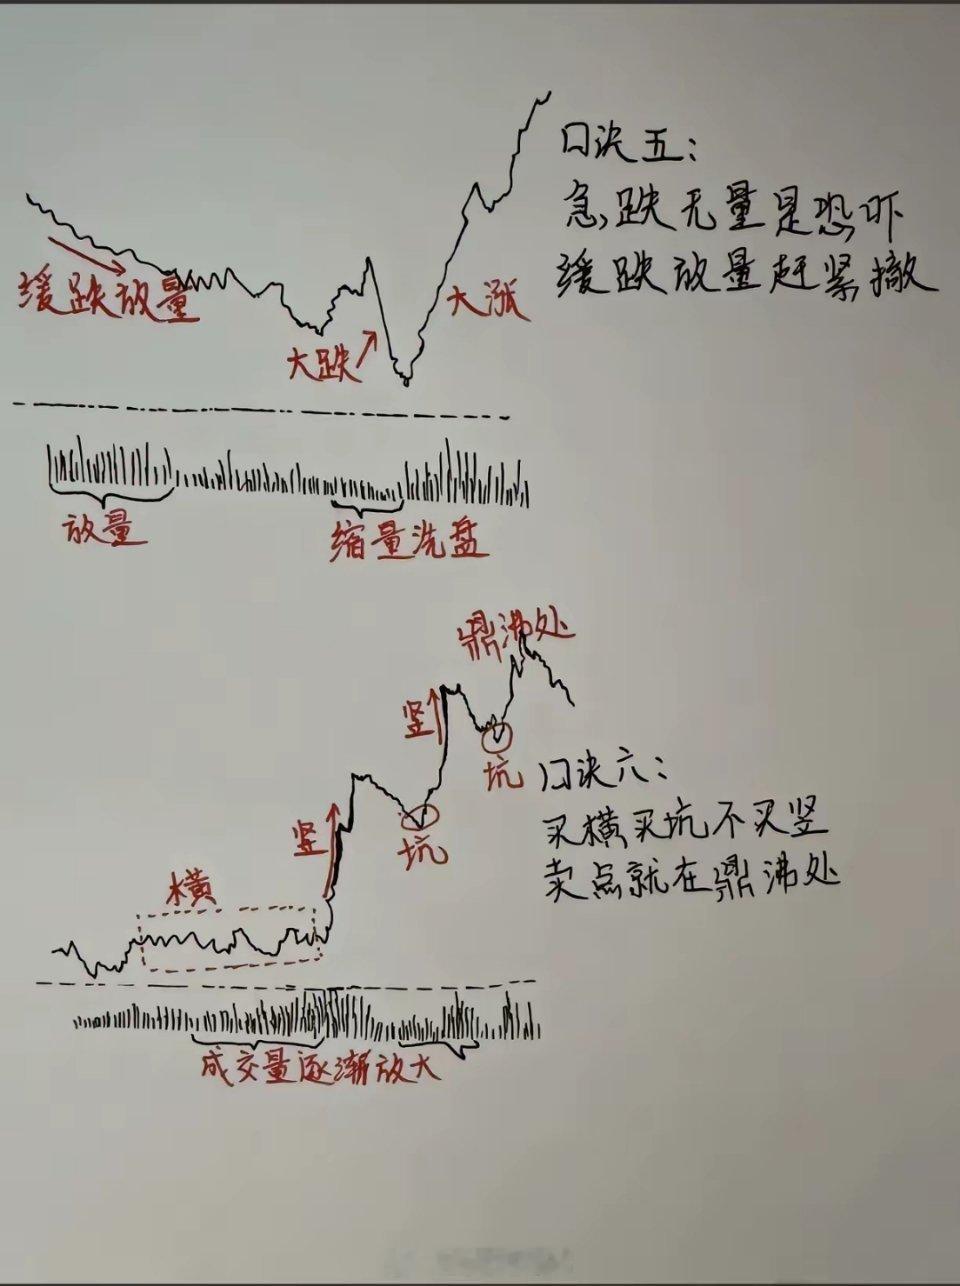 口决五：
急跌无量是恐吓
缓跌放量赶紧撤
缓跌放量
大跌
大涨
放量
缩量洗盘
鼎沸处
竖
坑
竖
坑
横
口决六：
买横买坑不买竖
卖点就在鼎沸处
成交量逐渐放大